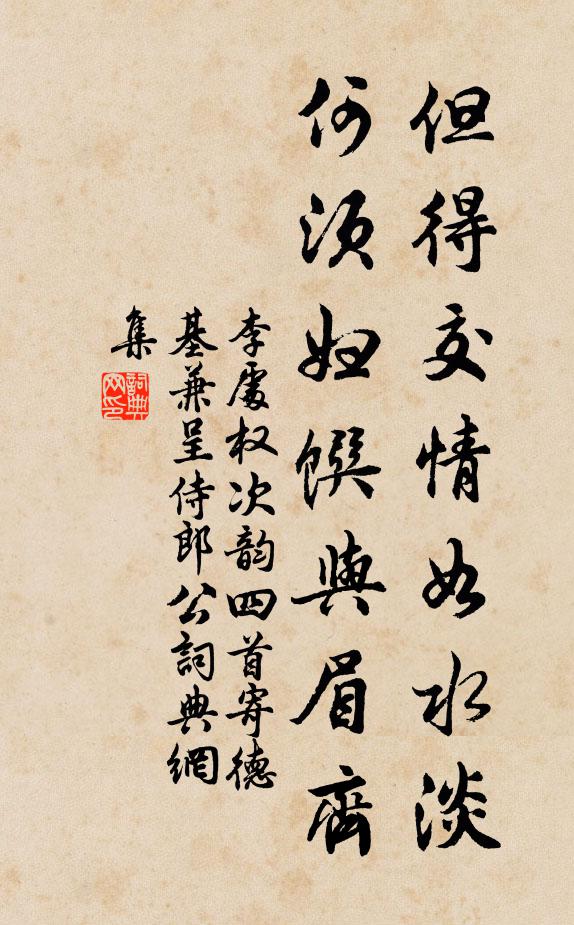 但得交情如水淡
何須婦饌與眉齊
李處权次韵四首寄德
基兼呈侍郎公詞典網
集
詞典
网印